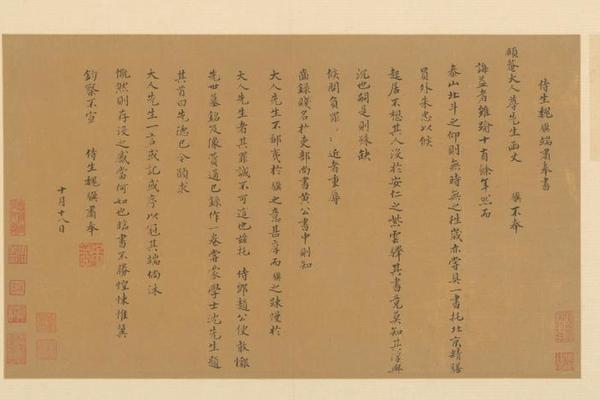 侍生魏驥端肅奉書
頤菴大人尊先生函丈 驥不奉
誨益者雖瑜十有餘年然而
泰山北斗之仰則無時無之往歲亦嘗具一書托北京精膳
員外朱忠以候
起居不想其人沒於安仁之紫雲驛其書竟莫知其浮與
沉也嗣是則殊缺
候問負罪〻〻近者重辱
齒錄賤名於吏部尚書黃公書中則知
大人先生不鄙夷於驥之意甚厚而驥之疎慢於
大人先生者其罪誠不可逭也茲托 侍郎趙公便敢樶
先世墓銘及像賛通已錄作一卷嘗蒙學士沈先生題
其首曰先德已令頤求
大人先生一言或記或序以冠其端倘沐
慨然則存沒之感當何如也臨書不勝惶悚惟冀
鈞察不宣 侍生魏驥肅奉
十月十八日